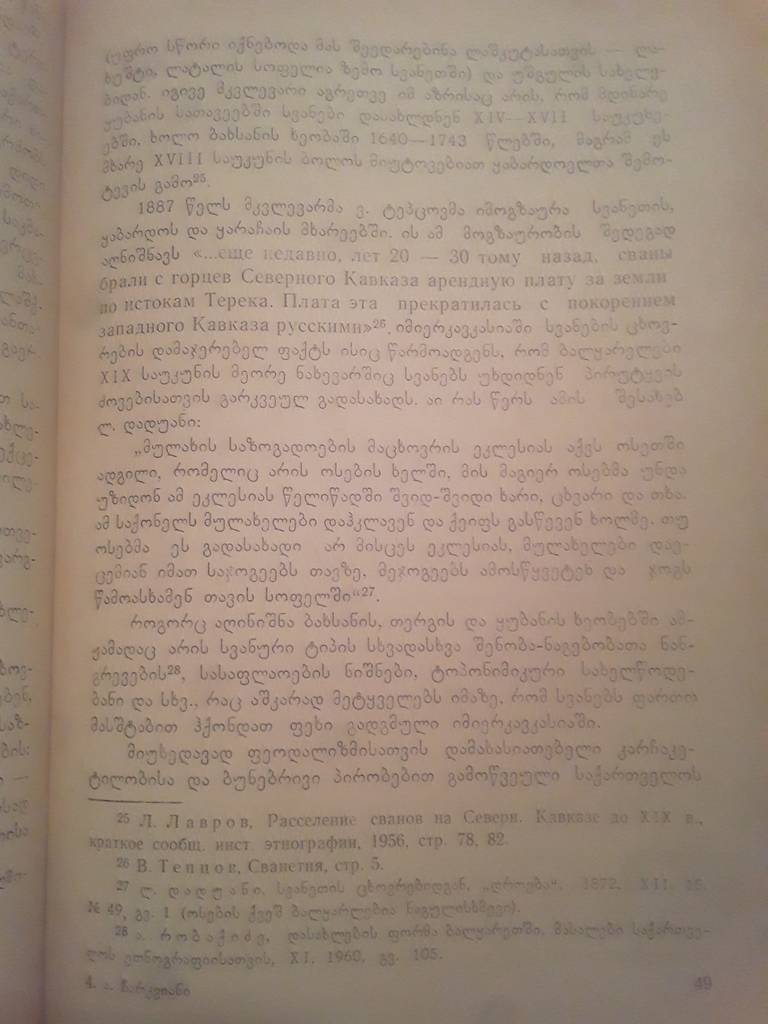 (უფრო სწორი იქნებოდა მას შეედარებინა ლაშკუტასათვის — ლა-
ხუშტი, ლატალის სოფელია ზემო სვანეთში) და უშგულის სახელე-
ბიდან. იგივე მკვლევარი აგრეთვე იმ აზრისაც არის, რომ მდინარე
ყუბანის სათავეებში სვანები დასახლდნენ XIV—XVII საუკუნე-
ებში, ხოლო ბახსანის ხეობაში 1640—1743 წლებში, მაგრამ ეს
მხარე XVIII საუკუნის ბოლოს მიუტოვებიათ ყაბარდოელთა შემო-
ტევის გამო²⁵.
1887 წელს მკვლევარმა ვ. ტეპცოვმა იმოგზაურა სვანეთის,
ყაბარდოს და ყარაჩაის მხარეებში. ის ამ მოგზაურობის შედეგად
აღნიშნავს «...еще недавно, лет 20 — 30 тому назад, сваны
брали с горцев Северного Кавказа арендную плату за земли
по истокам Терека. Плата эта прекратилась с покорением
западного Кавказа русскими»²⁶. იმიერკავკასიაში სვანების ცხოვ-
რების დამაჯერებელ ფაქტს ისიც წარმოადგენს, რომ ბალყარელები
XIX საუკუნის მეორე ნახევარშიც სვანებს უხდიდნენ პირუტყვის
ძოვებისათვის გარკვეულ გადასახადს. აი რას წერს ამის შესახებ
ლ. დადუანი:
„მულახის საზოგადოების მაცხოვრის ეკლესიას აქვს ოსეთში
ადგილი, რომელიც არის ოსების ხელში, მის მაგიერ ოსებმა უნდა
უზიდონ ამ ეკლესიას წელიწადში შვიდ-შვიდი ხარი, ცხვარი და თხა.
ამ საქონელს მულახელები დაჰკლავენ და ქეიფს გასწევენ ხოლმე, თუ
ოსებმა ეს გადასახადი არ მისცეს ეკლესიას, მულახელები დაე-
ცემიან იმათ საჯოგეებს თავზე, მეჯოგეებს ამოსწყვეტენ და ჯოგს
წამოასხამენ თავის სოფელში“²⁷.
როგორც აღინიშნა ბახსანის, თერგის და ყუბანის ხეობებში ამ-
ჟამადაც არის სვანური ტიპის სხვადასხვა შენობა-ნაგებობათა ნან-
გრევების²⁸, სასაფლაოების ნიშნები, ტოპონიმიკური სახელწოდე-
ბანი და სხვ., რაც აშკარად მეტყველებს იმაზე, რომ სვანებს ფართო
მასშტაბით ჰქონდათ ფეხი გადგმული იმიერკავკასიაში.
მიუხედავად ფეოდალიზმისათვის დამახასიათებელი კარჩაკე-
ტილობისა და ბუნებრივი პირობებით გამოწვეული საქართველოს
²⁵ Л. Лавров, Расселение сванов на Северн. Кавказе до XIX в.,
краткое сообщ. инст. этнографии, 1956, стр. 78, 82.
²⁶ В. Тепцов, Сванетия, стр. 5.
²⁷ ლ. დადუანი, სვანეთის ცხოვრებიდგან, „დროება“, 1872, XII,
№ 49, გვ. 1 (ოსების ქვეშ ბალყარლებია ნაგულისხმევი).
²⁸ ა. რობაქიძე, დასახლების ფორმა ბალყარეთში, მასალები საქართვე-
ლოს ეთნოგრაფიისათვის, XI, 1960, გვ. 105.
4. ა. ზარკვიანი
49